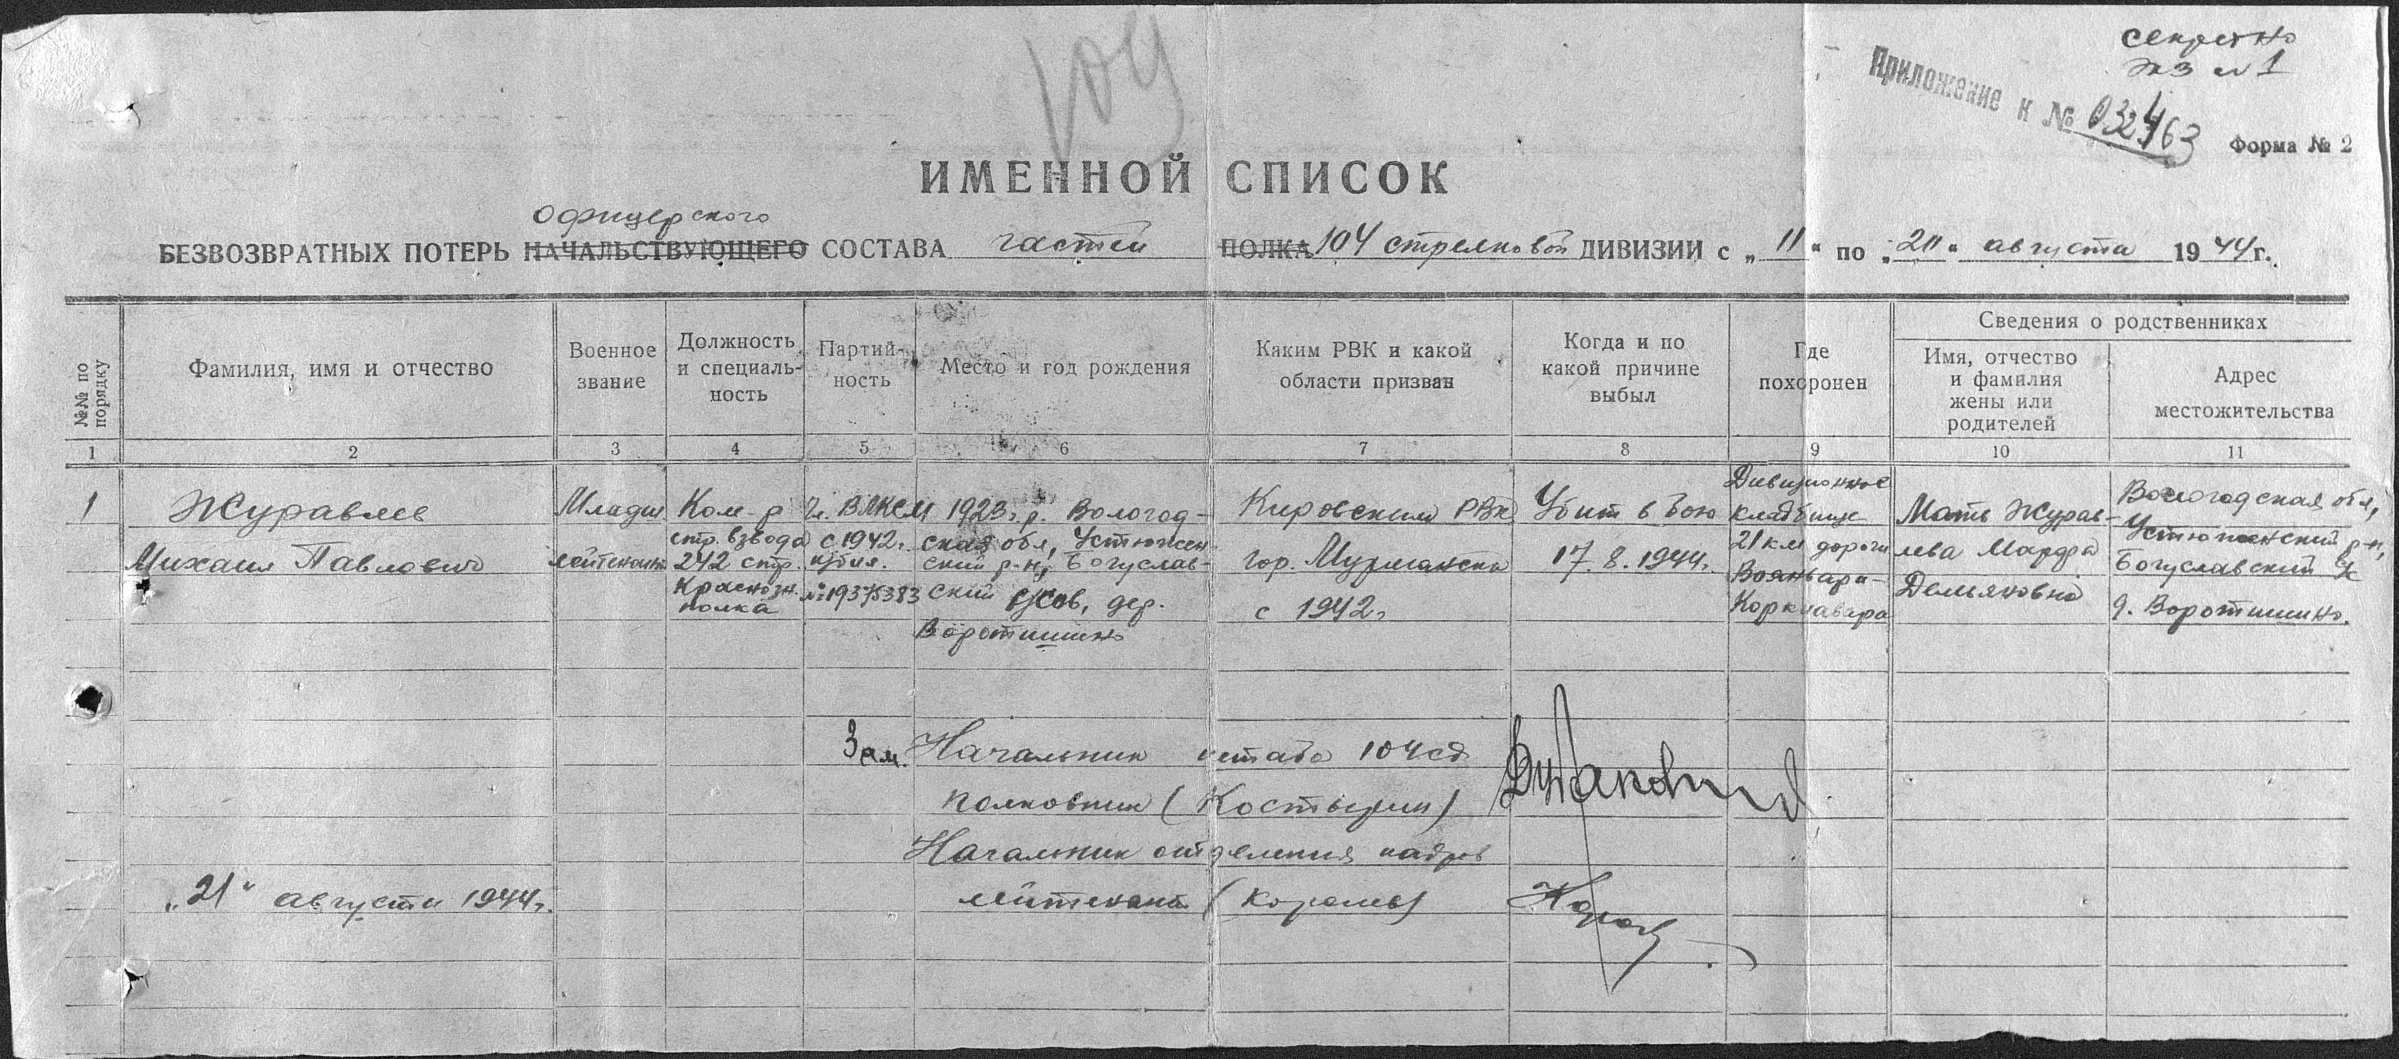 секретно
экз №1
Приложение к № 032463
Форма № 2
ИМЕННОЙ СПИСОК
офицерского
БЕЗВОЗВРАТНЫХ ПОТЕРЬ НАЧАЛЬСТВУЮЩЕГО СОСТАВА частей ПОЛКА 104 стрелковой ДИВИЗИИ с „11" по „20" августа 1944г.
№№ по порядку
Фамилия, имя и отчество
Военное
звание
Должность
и специаль-
ность
Партий-
ность
Место и год рождения
Каким РВК и какой
области призван
Когда и по
какой причине
выбыл
Где
похоронен
Сведения о родственниках
Имя, отчество
и фамилия
жены или
родителей
Адрес
местожительства
1 2 3 4 5 6 7 8 9 10 11
1
Журавлев
Михаил Павлович
Младш.
лейтенант
Ком-р
стр. взвода
242 стр.
Краснозн.
полка
Чл. ВЛКСМ
с 1942г.
№19375383
1923г.р. Вологод-
ская обл, Устюжен
ский р-н, Богуслав-
ский с/сов, дер.
Воротишино
Кировским РВК
гор. Мурманска
с 1942г
Убит в бою
17.8.1944г.
Дивизионное
кладбище
21 км дороги
Воянвара-
Коркиавара
Мать Журав-
лева Марфа
Демьяновна
Вологодская обл,
Устюженский р-н,
Богуславский с/с
д. Воротишино.
Зам. Начальник штаба 104сд
полковник (Костырин)
Начальник отделения кадров
лейтенант (Королев)
„21" августа 1944г.